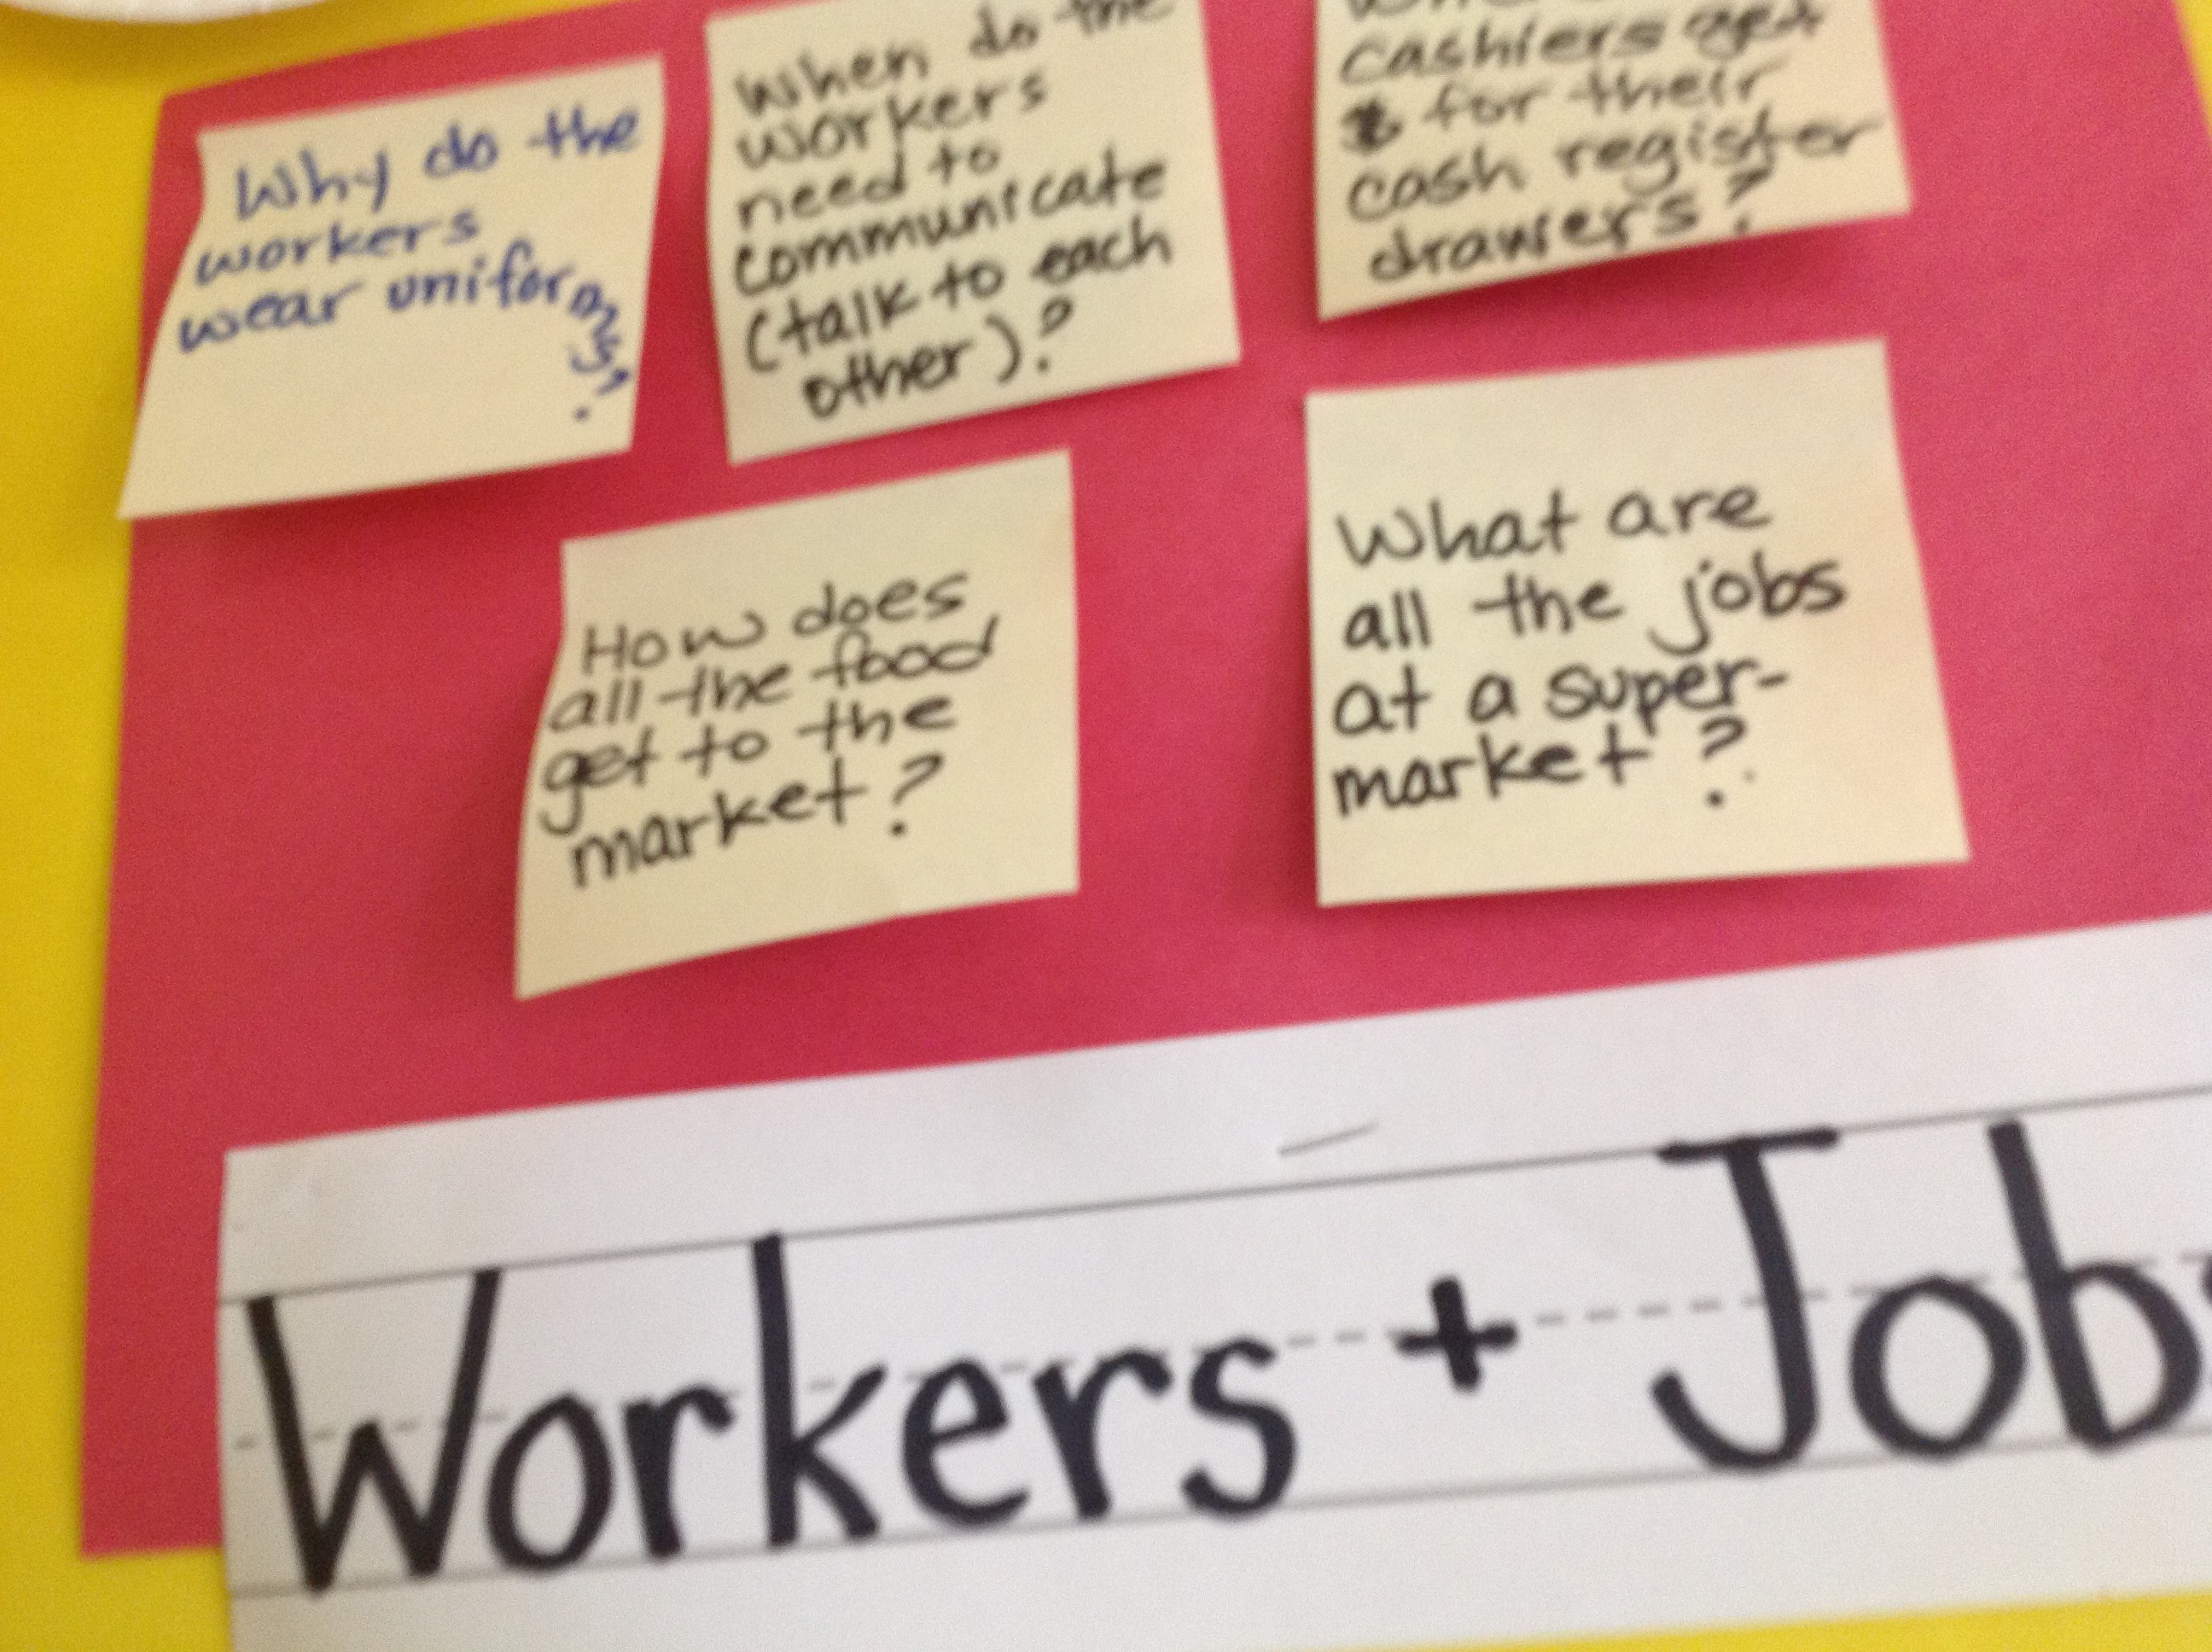 Why do the
workers
wear uniforms?
When do the
workers
need to
communicate
(talk to each
other)?
cashiers get
$ for their
cash register
drawers?
How does
all the food
get to the
market?
What are
all the jobs
at a super-
market?
Workers + Jobs